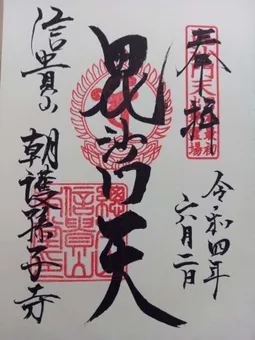 奉拝
令和四年
六月二日
毘沙門天
信貴山
朝護孫子寺